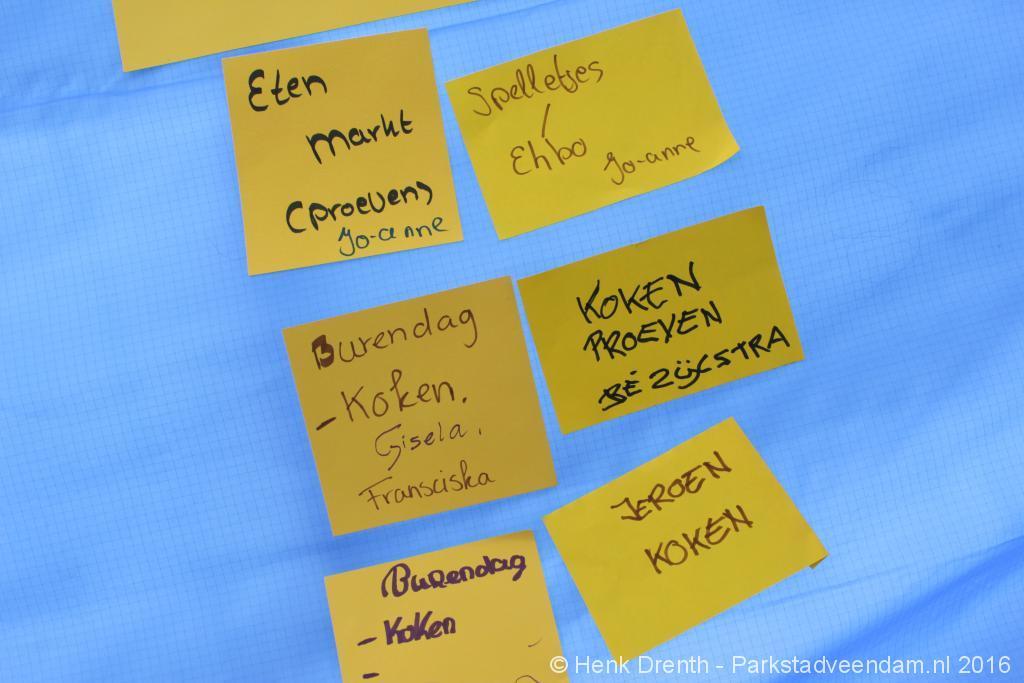 Eten
markt
(proeven)
Jo-anne
Spelletjes
/
Ehbo
Jo-anne
Burendag
- Koken.
Gisela.
Fransciska
KOKEN
PROEVEN
BÉ ZIJLSTRA
JEROEN
KOKEN
Burendag
- Koken
-
© Henk Drenth - Parkstadveendam.nl 2016